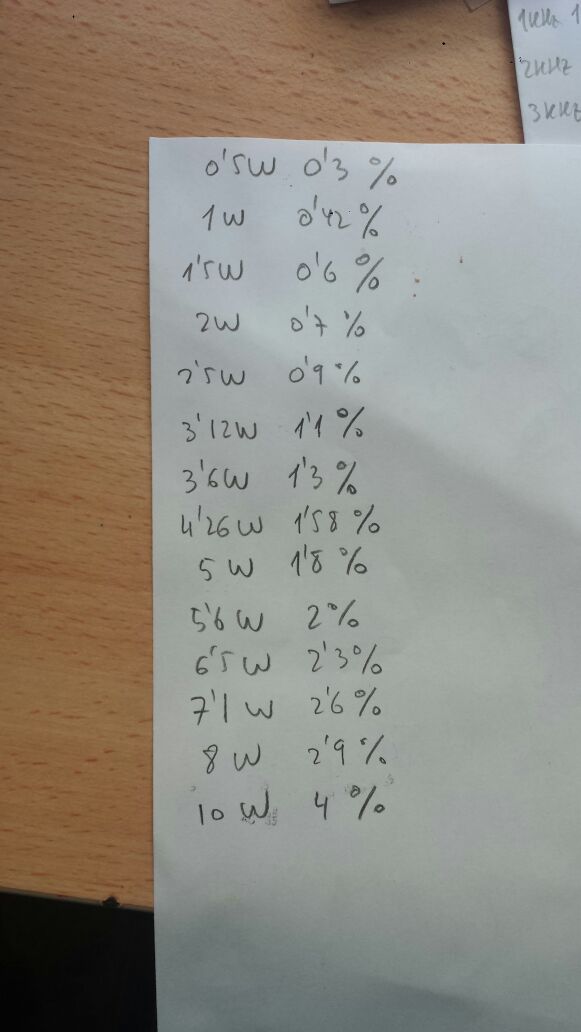 1KHz 1
2KHZ
3KHZ
0'5W 0'3 %
1W 0'42%
1'5W 0'6 %
2W 0'7 %
2'5W 0'9 %
3'12W 1'1 %
3'6W 1'3 %
4'26W 1'58%
5 W 1'8 %
5'6 W 2%
6'5 W 2'3%
7'1 W 2'6 %
8 W 2'9 %
10 W 4 %